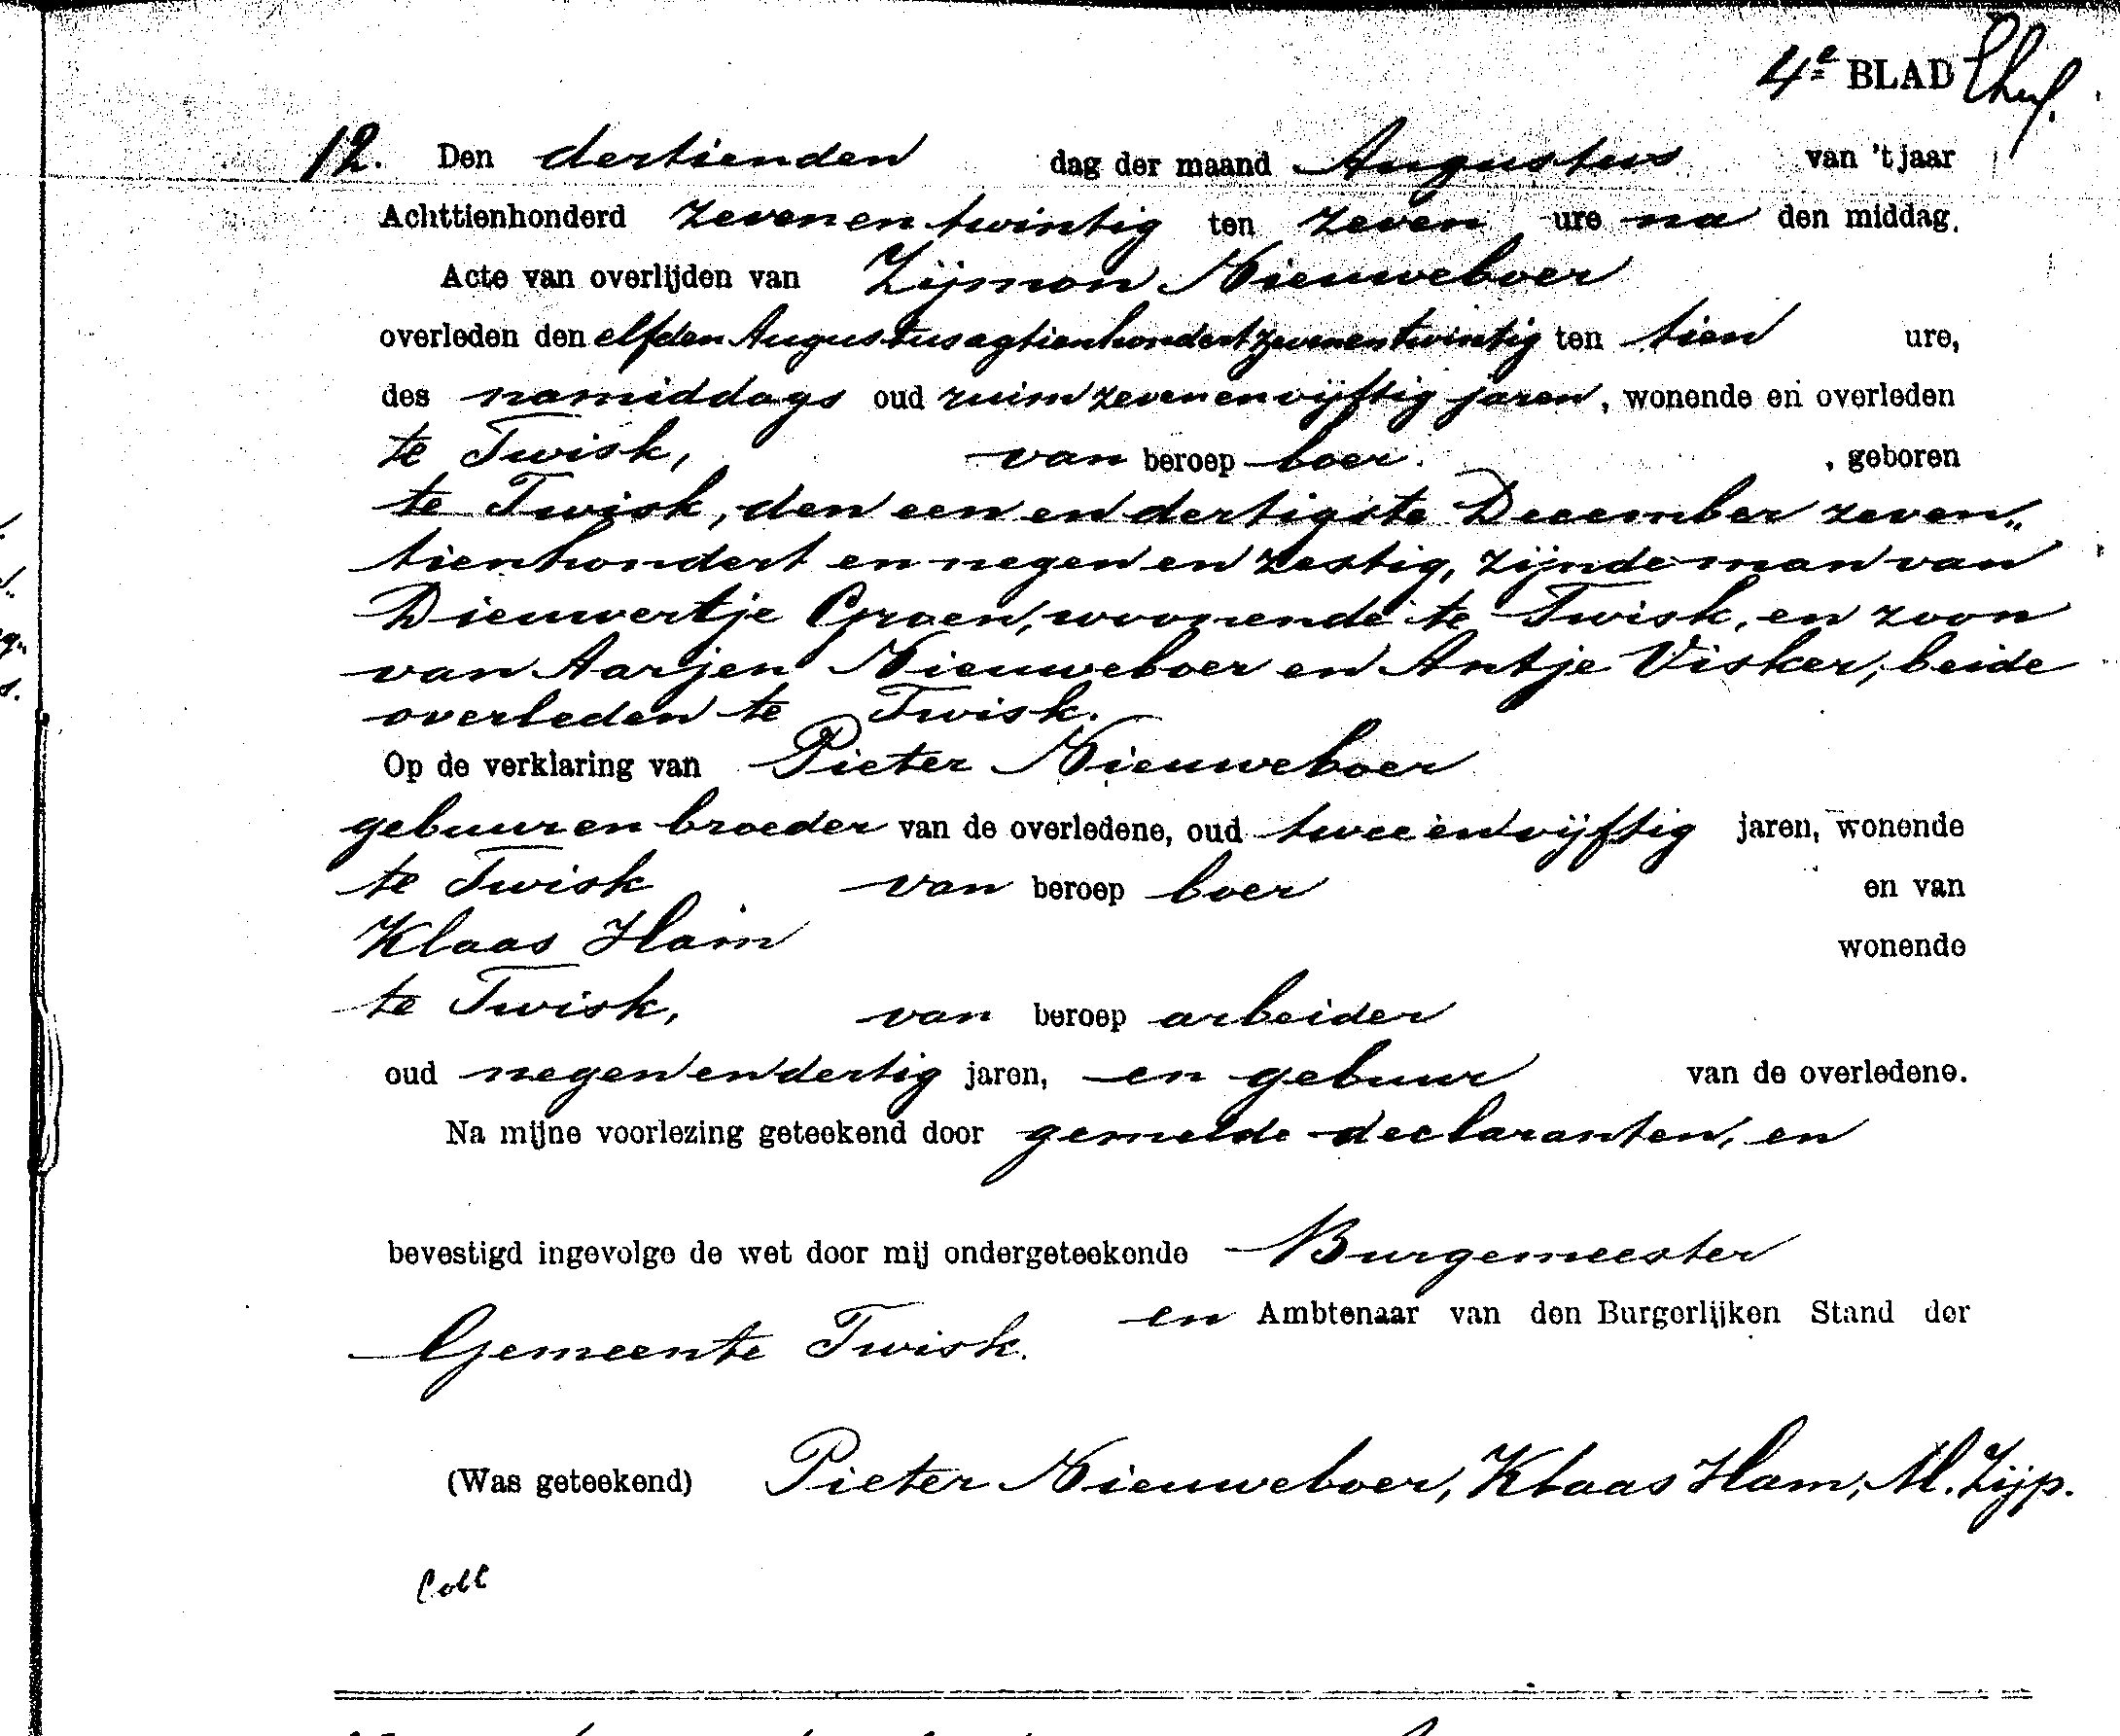 4e BLAD
12. Den dertienden dag der maand Augustus van 't jaar
Achttienhonderd zevenentwintig ten zeven ure na den middag.
Acte van overlijden van Zijmon Nieuweboer
overleden den elfden Augustus agtienhondert zevenentwintig ten tien ure,
des namiddags oud ruim zevenenvijftig jaren, wonende en overleden
te Twisk, van beroep boer. , geboren
te Twisk, den een en dertigste December zeven„
tienhondert en negen en zestig, zijnde man van
Dieuwertje Groen, woonende te Twisk, en zoon
van Aarjen Nieuweboer en Antje Visker, beide
overleden te Twisk.
Op de verklaring van Pieter Nieuweboer
gebuur en broeder van de overledene, oud twee en vijftig jaren, wonende
te Twisk van beroep boer en van
Klaas Ham wonende
te Twisk, van beroep arbeider
oud negen en dertig jaren, en gebuur van de overledene.
Na mijne voorlezing geteekend door gemelde declaranten, en
bevestigd ingevolge de wet door mij ondergeteekende Burgemeester
en Ambtenaar van den Burgerlijken Stand der
Gemeente Twisk.
(Was geteekend) Pieter Nieuweboer, Klaas Ham, M. Zijp.
Coll